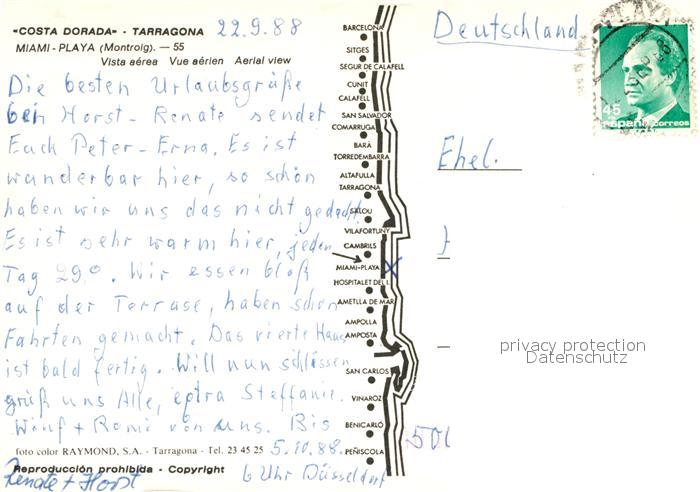 "COSTA DORADA" - TARRAGONA 22.9.88
MIAMI-PLAYA (Montroig). — 55
Vista aérea Vue aérien Aerial view
Die besten Urlaubsgrüße
bei Horst - Renate sendet
Euch Peter - Erna. Es ist
wunderbar hier, so schön
haben wir uns das nicht gedacht.
Es ist sehr warm hier, jeden
Tag 29°. Wir essen bloß
auf der Terrase, haben schon
Fahrten gemacht. Das vierte Haus
ist bald fertig. Will nun schlüssen
grüß uns Alle, extra Steffanie.
Winf + Romi von uns. Bis
foto color RAYMOND, S.A. - Tarragona - Tel. 23 45 25 5.10.88.
Reproducción prohibida - Copyright 6 Uhr Düsseldorf
Renate + Horst
BARCELONA
SITGES
SEGUR DE CALAFELL
CUNIT
CALAFELL
SAN SALVADOR
COMARRUGA
BARÁ
TORREDEMBARRA
ALTAFULLA
TARRAGONA
SALOU
VILAFORTUNY
CAMBRILS
MIAMI-PLAYA
HOSPITALET DEL I.
AMETLLA DE MAR
AMPOLLA
AMPOSTA
SAN CARLOS
VINAROZ
BENICARLO
PEÑISCOLA
Deutschland
45
España correos
Ehel.
privacy protection
Datenschutz
501